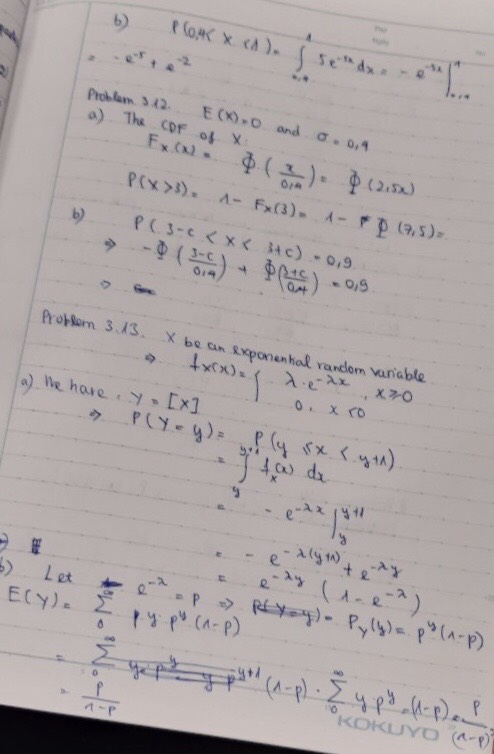 b) P(0,4 < X < 1) = ∫_{0,4}^{1} 5e^{-5x} dx = - e^{-5x} |_{0,4}^{1}
= - e^{-5} + e^{-2}
Problem 3.12. E(X)=0 and σ = 0,4
a) The CDF of X:
F_X(x) = Φ(x/0,4) = Φ(2,5x)
P(X>3) = 1 - F_X(3) = 1 - Φ(7,5) =
b) P(3-c < X < 3+c) = 0,9
⇒ -Φ((3-c)/0,4) + Φ((3+c)/0,4) = 0,9
⇒
Problem 3.13. X be an exponential random variable
⇒ f_X(x) = { λ·e^{-λx}, x≥0
0, x<0
a) We have, Y = [X]
⇒ P(Y=y) = P(y ≤ X < y+1)
= ∫_{y}^{y+1} f_X(x) dx
= - e^{-λx} |_{y}^{y+1}
= - e^{-λ(y+1)} + e^{-λy}
= e^{-λy} (1 - e^{-λ})
b) Let e^{-λ} = p ⇒ P(Y=y) = P_Y(y) = p^y (1-p)
E(Y) = Σ_{0}^{∞} y·p^y (1-p)
= Σ_{0}^{∞} y·p^y - y p^{y+1} (1-p) · Σ_{0}^{∞} y·p^y = (1-p) · p/(1-p)
= p/(1-p)
KOKUYO